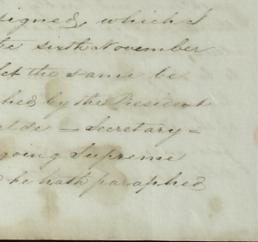 signed, which I
the sixth November
let the same be
hed by the President
elde - Secretary -
going Supreme
he hath paraphed